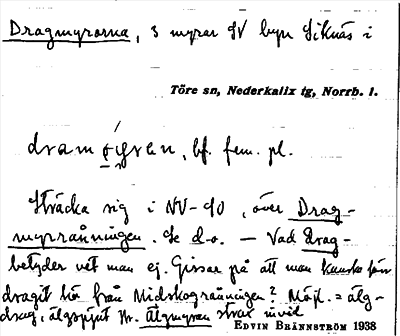 Dragmyrarna, 3 myrar SV byn Siknäs i
Töre sn, Nederkalix tg, Norrb. l.
bf. fem. pl.
Sträcka sig i NV-SO, över Drag-
myrrånningen. Se d.o. — Vad Drag-
betyder vet man ej. Gissar på att man kanske förr
dragit hö från Midskogsrånningen? Möjl. = älg-
drag, älgspjut Jfr. Älgmyran strax invid
EDVIN BRÄNNSTRÖM 1938